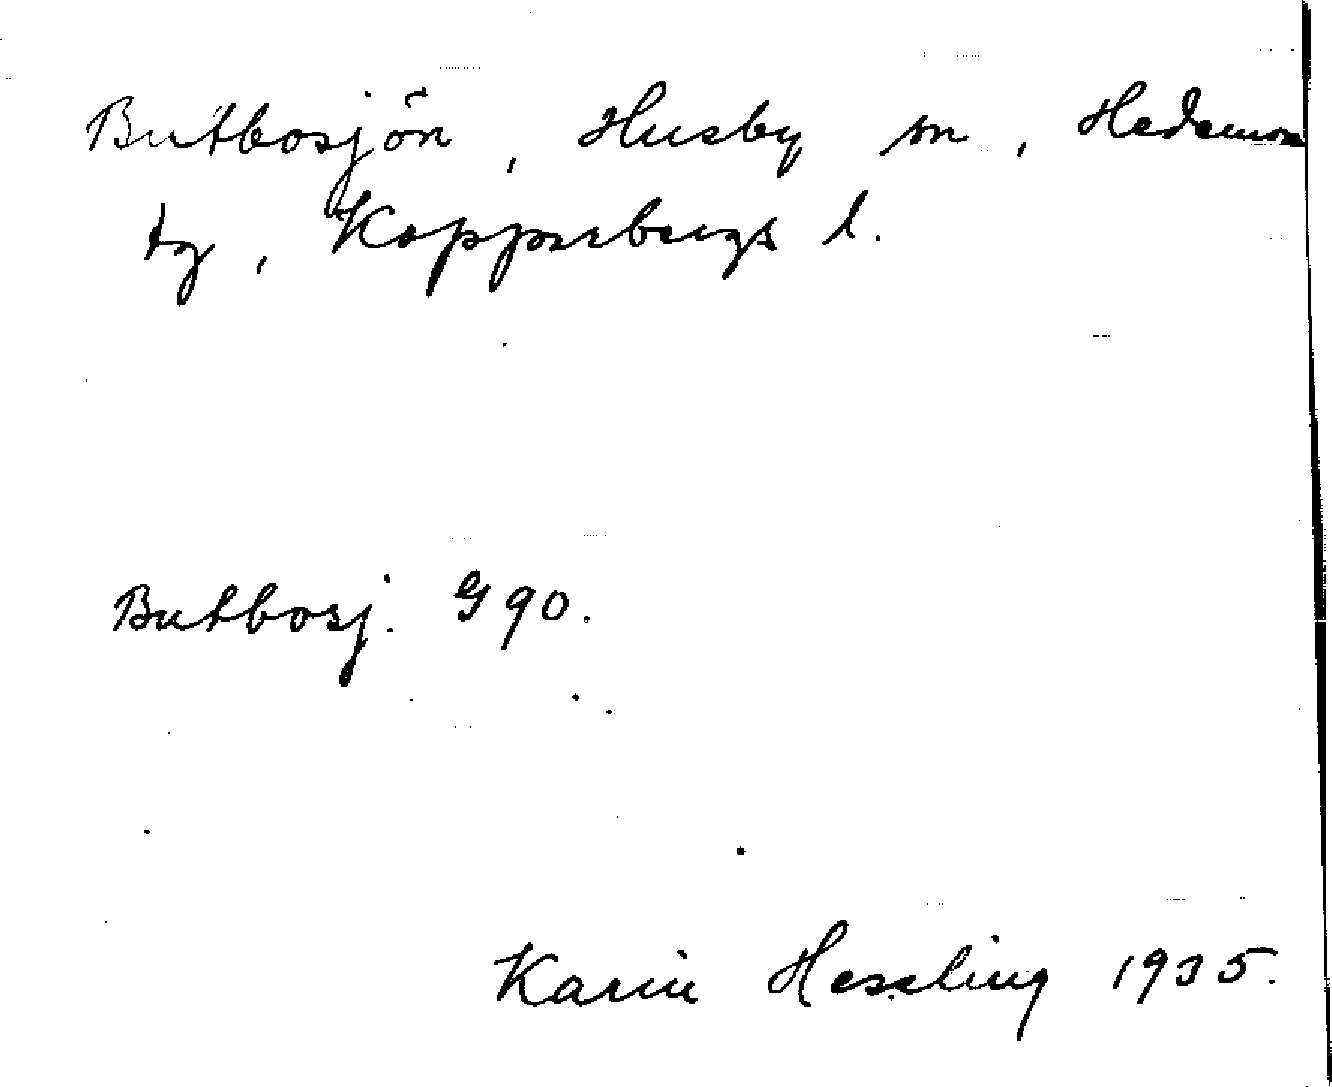 Butbosjön, Husby sn, Hedemora
tg, Kopparbergs l.
Butbosj. G 90.
Karin Hessling 1935.